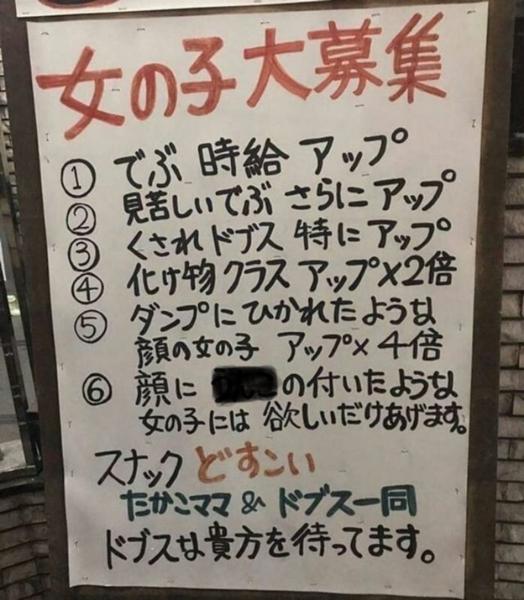 女の子大募集
① でぶ 時給 アップ
② 見苦しいでぶ さらにアップ
③ くされドブス 特にアップ
④ 化け物クラス アップ×2倍
⑤ ダンプにひかれたような
顔の女の子 アップ×4倍
⑥ 顔に の付いたような
女の子には 欲しいだけあげます。
スナック どすこい
たかこママ & ドブス一同
ドブスな貴方を待ってます。